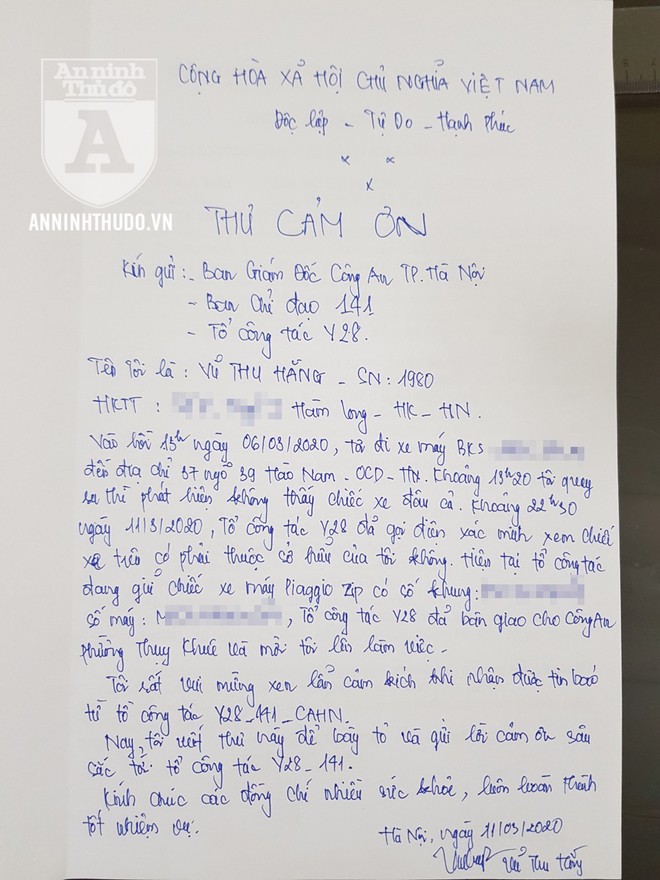 An ninh
Thủ đô
A
ANNINHTHUDO.VN
CỘNG HÒA XẢ HỘI CHỦ NGHỈA VIỆT NAM
Độc lập - Tự Do - Hạnh Phúc
x x
x
THƯ CẢM ƠN
Kín gửi: - Ban Giám Đốc Công An TP. Hà Nội
- Ban Chỉ đạo 141
- Tổ công tác Y28.
Tên tôi là : VŨ THU HẰNG - SN: 1980
HKTT : Hàm Long - HK - HN.
Vào hồi 13h ngày 06/03/2020, tôi đi xe máy BKS
đến địa chỉ 37 ngõ 39 Hào Nam - OCD - HN. Khoảng 13h20 tôi quay
ra thì phát hiện không thấy chiếc xe đâu cả. Khoảng 22h30
ngày 11/3/2020, Tổ công tác Y28 đả gọi điện xác minh xem chiếc
xe trên có phải thuộc sở hữu của tôi không. Hiện tại tổ công tác
đang giữ chiếc xe máy Piaggio Zip có số khung:
số máy: M , Tổ công tác Y28 đả bàn giao cho Công An
phường Thụy Khuê và mời tôi lên làm việc.
Tôi rất vui mừng xen lẫn cảm kích khi nhận được tin báo
từ tổ công tác Y28-141-CAHN.
Nay, tôi viết thư này để bày tỏ và gửi lời cảm ơn sâu
sắc tới tổ công tác Y28-141.
Kính chúc các đồng chí nhiều sức khỏe, luôn hoàn thành
tốt nhiệm vụ.
Hà Nội, ngày 11/03/2020
Vũ Thu Hằng